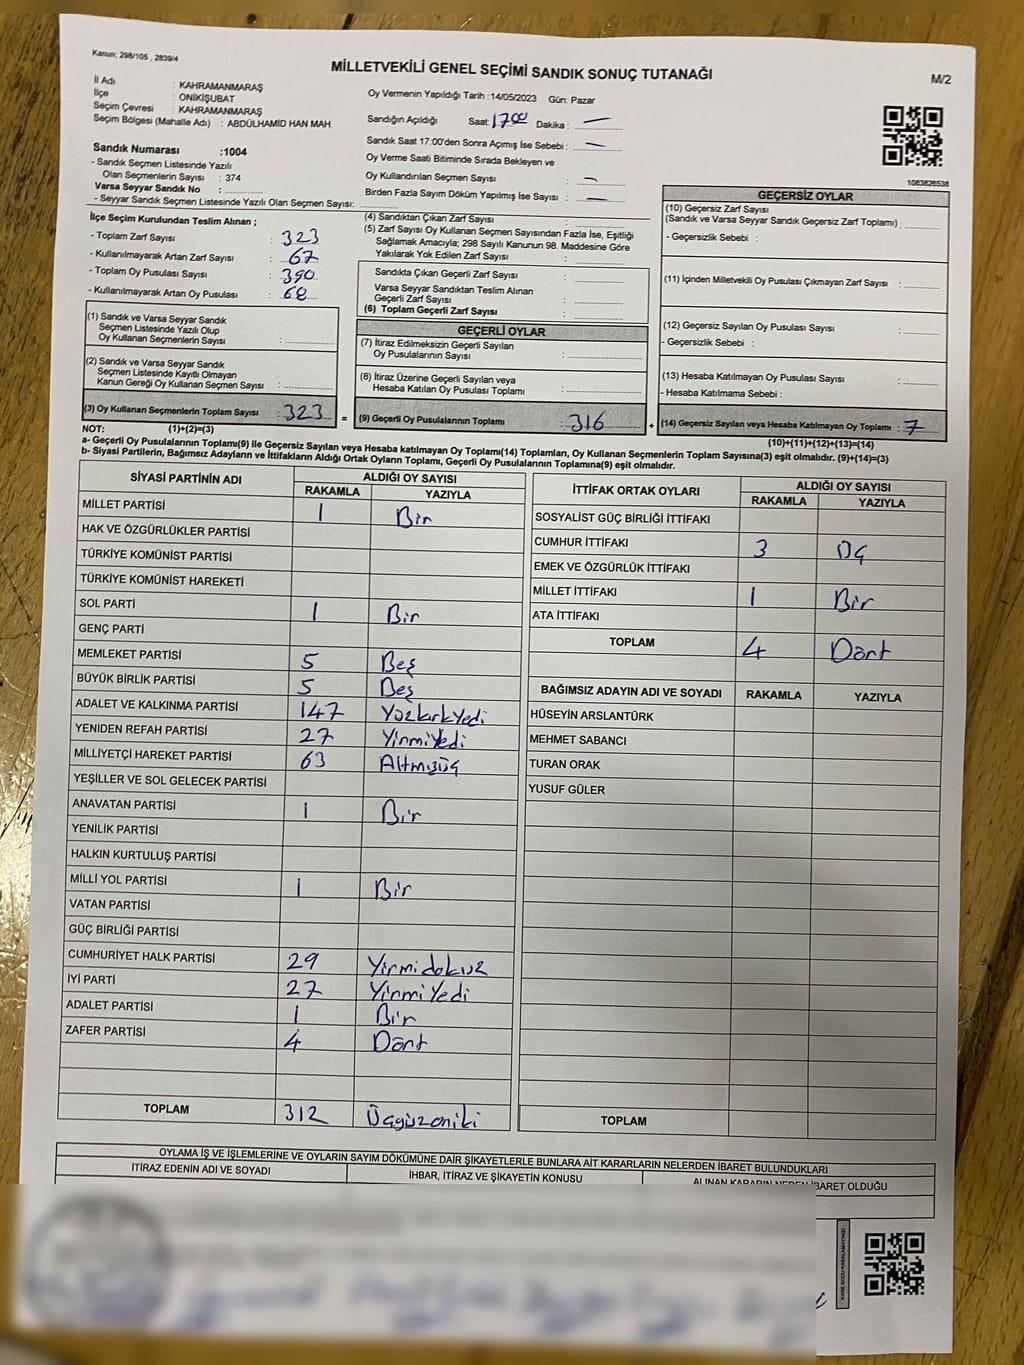 Kanun; 298/105 , 2839/4
MİLLETVEKİLİ GENEL SEÇİMİ SANDIK SONUÇ TUTANAĞI
M/2
İl Adı : KAHRAMANMARAŞ
İlçe : ONİKİŞUBAT
Seçim Çevresi : KAHRAMANMARAŞ
Seçim Bölgesi (Mahalle Adı) : ABDÜLHAMİD HAN MAH.
Sandık Numarası :1004
- Sandık Seçmen Listesinde Yazılı
Olan Seçmenlerin Sayısı : 374
Varsa Seyyar Sandık No :
- Seyyar Sandık Seçmen Listesinde Yazılı Olan Seçmen Sayısı:
Oy Vermenin Yapıldığı Tarih :14/05/2023 Gün: Pazar
Sandığın Açıldığı Saat: 17:00 Dakika : —
Sandık Saat 17:00'den Sonra Açımış İse Sebebi : —
Oy Verme Saati Bitiminde Sırada Bekleyen ve
Oy Kullandırılan Seçmen Sayısı : —
Birden Fazla Sayım Döküm Yapılmış İse Sayısı : —
1083826538
İlçe Seçim Kurulundan Teslim Alınan ;
- Toplam Zarf Sayısı : 323
- Kullanılmayarak Artan Zarf Sayısı : 67
- Toplam Oy Pusulası Sayısı : 390
- Kullanılmayarak Artan Oy Pusulası : 68
(1) Sandık ve Varsa Seyyar Sandık
Seçmen Listesinde Yazılı Olup
Oy Kullanan Seçmenlerin Sayısı :
(2) Sandık ve Varsa Seyyar Sandık
Seçmen Listesinde Kayıtlı Olmayan
Kanun Gereği Oy Kullanan Seçmen Sayısı :
(3) Oy Kullanan Seçmenlerin Toplam Sayısı : 323 =
(4) Sandıktan Çıkan Zarf Sayısı :
(5) Zarf Sayısı Oy Kullanan Seçmen Sayısından Fazla İse, Eşitliği
Sağlamak Amacıyla; 298 Sayılı Kanunun 98. Maddesine Göre
Yakılarak Yok Edilen Zarf Sayısı :
Sandıkta Çıkan Geçerli Zarf Sayısı :
Varsa Seyyar Sandıktan Teslim Alınan
Geçerli Zarf Sayısı :
(6) Toplam Geçerli Zarf Sayısı :
GEÇERLİ OYLAR
(7) İtiraz Edilmeksizin Geçerli Sayılan
Oy Pusulalarının Sayısı :
(8) İtiraz Üzerine Geçerli Sayılan veya
Hesaba Katılan Oy Pusulası Toplamı :
(9) Geçerli Oy Pusulalarının Toplamı : 316 +
GEÇERSİZ OYLAR
(10) Geçersiz Zarf Sayısı
(Sandık ve Varsa Seyyar Sandık Geçersiz Zarf Toplamı) :
- Geçersizlik Sebebi :
(11) İçinden Milletvekili Oy Pusulası Çıkmayan Zarf Sayısı :
(12) Geçersiz Sayılan Oy Pusulası Sayısı :
- Geçersizlik Sebebi :
(13) Hesaba Katılmayan Oy Pusulası Sayısı :
- Hesaba Katılmama Sebebi :
(14) Geçersiz Sayılan veya Hesaba Katılmayan Oy Toplamı : 7
NOT: (1)+(2)=(3) (10)+(11)+(12)+(13)=(14)
a- Geçerli Oy Pusulalarının Toplamı(9) ile Geçersiz Sayılan veya Hesaba katılmayan Oy Toplamı(14) Toplamları, Oy Kullanan Seçmenlerin Toplam Sayısına(3) eşit olmalıdır. (9)+(14)=(3)
b- Siyasi Partilerin, Bağımsız Adayların ve İttifakların Aldığı Ortak Oyların Toplamı, Geçerli Oy Pusulalarının Toplamına(9) eşit olmalıdır.
SİYASİ PARTİNİN ADI ALDIĞI OY SAYISI
RAKAMLA YAZIYLA
MİLLET PARTİSİ 1 Bir
HAK VE ÖZGÜRLÜKLER PARTİSİ
TÜRKİYE KOMÜNİST PARTİSİ
TÜRKİYE KOMÜNİST HAREKETİ
SOL PARTİ 1 Bir
GENÇ PARTİ
MEMLEKET PARTİSİ 5 Beş
BÜYÜK BİRLİK PARTİSİ 5 Beş
ADALET VE KALKINMA PARTİSİ 147 Yüzkırkyedi
YENİDEN REFAH PARTİSİ 27 YirmiYedi
MİLLİYETÇİ HAREKET PARTİSİ 63 Altmışüç
YEŞİLLER VE SOL GELECEK PARTİSİ
ANAVATAN PARTİSİ 1 Bir
YENİLİK PARTİSİ
HALKIN KURTULUŞ PARTİSİ
MİLLİ YOL PARTİSİ 1 Bir
VATAN PARTİSİ
GÜÇ BİRLİĞİ PARTİSİ
CUMHURİYET HALK PARTİSİ 29 Yirmidokuz
İYİ PARTİ 27 YirmiYedi
ADALET PARTİSİ 1 Bir
ZAFER PARTİSİ 4 Dört
TOPLAM 312 Üçyüzoniki
İTTİFAK ORTAK OYLARI ALDIĞI OY SAYISI
RAKAMLA YAZIYLA
SOSYALİST GÜÇ BİRLİĞİ İTTİFAKI
CUMHUR İTTİFAKI 3 Üç
EMEK VE ÖZGÜRLÜK İTTİFAKI
MİLLET İTTİFAKI 1 Bir
ATA İTTİFAKI
TOPLAM 4 Dört
BAĞIMSIZ ADAYIN ADI VE SOYADI RAKAMLA YAZIYLA
HÜSEYİN ARSLANTÜRK
MEHMET SABANCI
TURAN ORAK
YUSUF GÜLER
TOPLAM
OYLAMA İŞ VE İŞLEMLERİNE VE OYLARIN SAYIM DÖKÜMÜNE DAİR ŞİKAYETLERLE BUNLARA AİT KARARLARIN NELERDEN İBARET BULUNDUKLARI
İTİRAZ EDENİN ADI VE SOYADI İHBAR, İTİRAZ VE ŞİKAYETİN KONUSU ALINAN KARARIN NEDEN İBARET OLDUĞU